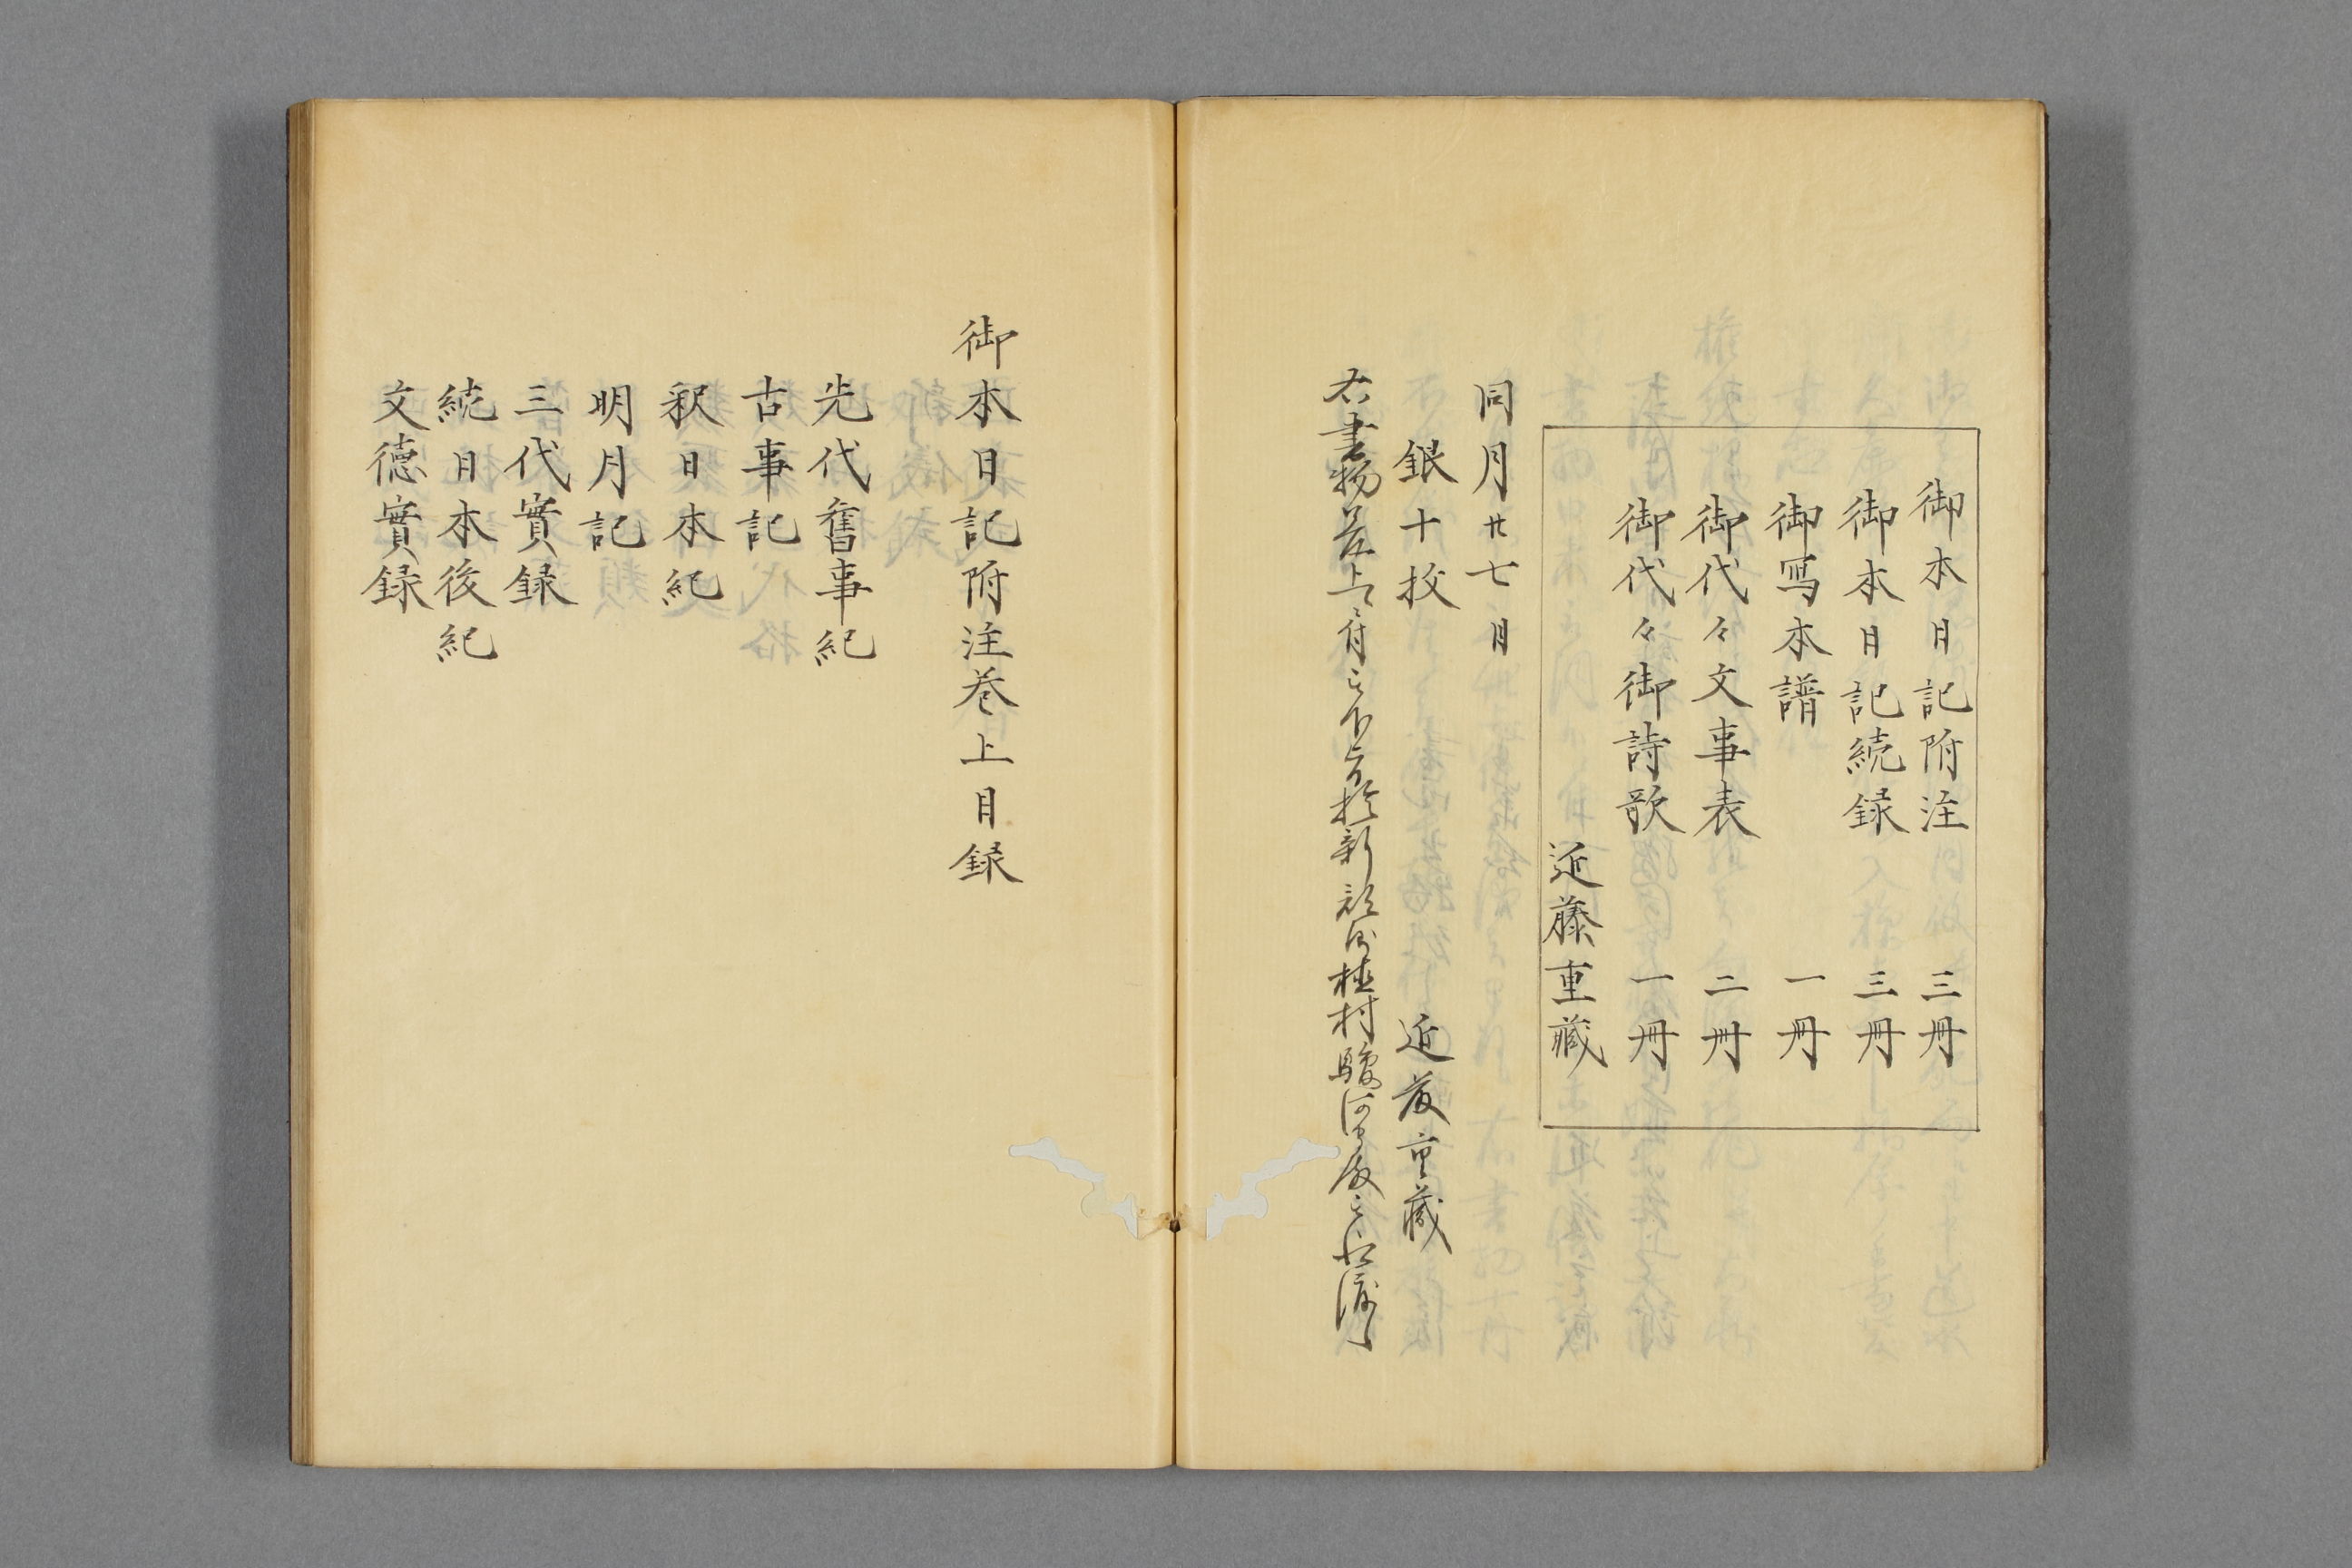 御本日記附注 三冊
御本日記続録 三冊
御写本譜 一冊
御代々文事表 二冊
御代々御詩歌 一冊
近藤重蔵
同月廿七日
銀十枚 近藤重蔵
右書物差上候付被下旨於新部屋植村駿河守殿被仰渡
御本日記附注巻上目録
先代舊事紀
古事記
釈日本紀
明月記
三代實録
続日本後紀
文徳實録